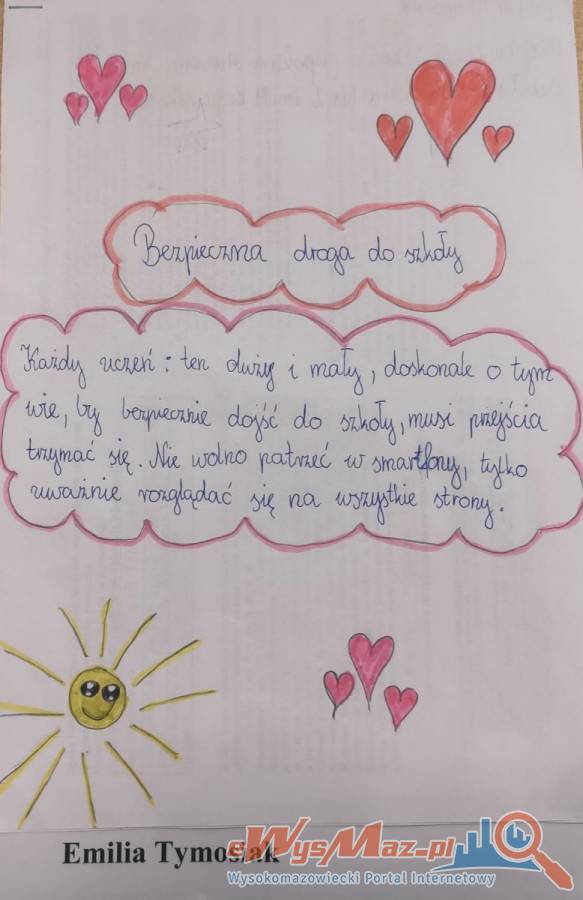 Bezpieczna droga do szkoły
Każdy uczeń: ten duży i mały, doskonale o tym
wie, by bezpiecznie dojść do szkoły, musi przejścia
trzymać się. Nie wolno patrzeć w smartfony, tylko
uważnie rozglądać się na wszystkie strony.
Emilia Tymosiak
eWysMaz.pl
Wysokomazowiecki Portal Internetowy